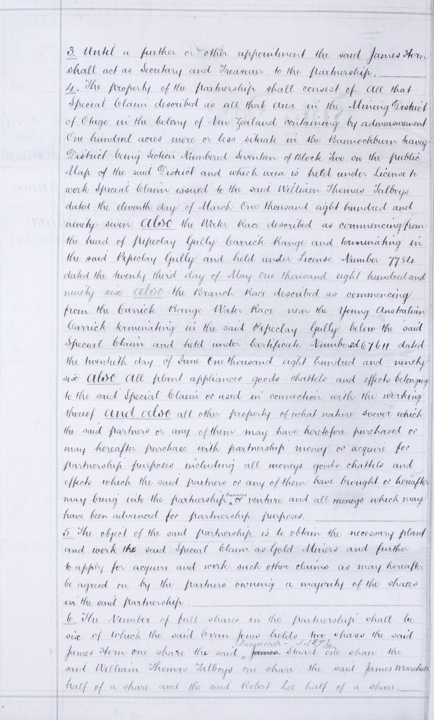 3. Until a further or other appointment the said James Horn
shall act as Secretary and Treasurer to the partnership.
4. The property of the partnership shall consist of All that
Special Claim described as all that area in the Mining District
of Otago in the Colony of New Zealand containing by admeasurement
One hundred acres more or less situate in the Bannockburn Survey
District being Section Numbered Seventeen of Block Two on the public
Map of the said District and which area is held under License to
work Special Claim issued to the said William Thomas Talboys
dated the eleventh day of March One thousand eight hundred and
ninety seven Also the Water Race described as commencing from
the head of Pipeclay Gully Carrick Range and terminating in
the said Pipeclay Gully and held under License Number
dated the twenty third day of May One thousand eight hundred and
ninety six also the Branch Race described as commencing
from the Carrick Range Water Race near the Young Australian
Carrick terminating in the said Pipeclay Gully below the said
Special Claim and held under Certificate Numbered 67611 dated
the twentieth day of June One thousand eight hundred and ninety
six also All plant appliances goods chattels and effects belonging
to the said Special Claim or used in connection with the working
thereof and also all other property of what nature soever which
the said partners or any of them may have heretofore purchased or
may hereafter purchase with partnership money or acquire for
partnership purposes including all moneys goods chattels and
effects which the said partners or any of them have brought or hereafter
may bring into the partnership or venture and all moneys which may
have been advanced for partnership purposes.
5 The object of the said partnership is to obtain the necessary plant
and work the said Special Claim as Gold Miners and further
to apply for acquire and work such other claims as may hereafter
be agreed on by the partners owning a majority of the shares
in the said partnership.
6. The Number of full shares in the partnership shall be
six of which the said Evan Jones holds two shares the said
James Horn one share the said James Stuart one share the
said William Thomas Talboys one share the said James
half of a share and the said Robert Lee half of a share.